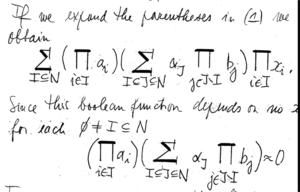 If we expand the parentheses in (1) we
obtain
∑_{I⊆N} (∏_{i∈I} a_i) (∑_{I⊆J⊆N} α_J ∏_{j∈J∖I} b_j) ∏_{i∈I} x_i .
Since this boolean function depends on no
for each ∅ ≠ I ⊆ N
(∏_{i∈I} a_i) (∑_{I⊆J⊆N} α_J ∏_{j∈J∖I} b_j) ≈ 0